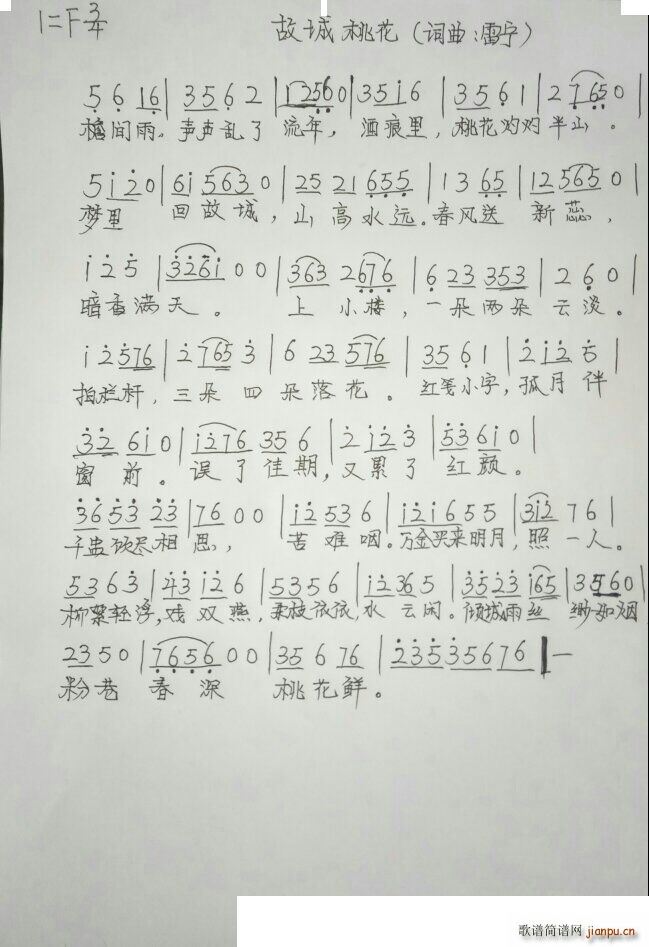 1=F 3/4
故城桃花（词曲:雷宁）
5 6 16 | 35 6 2 | 12560 | 35i6 | 3561 | 2 7650
檐间雨。声声乱了 流年，酒痕里，桃花灼灼半山。
5i20 | 6i5630 | 25 21 655 | 13 65 | 125650 |
梦里 回故城，山高水远。春风送 新蕊，
i 2 5 | 326i 00 | 363 2676 | 6 23 353 | 2 6 0 |
暗香满天。 上小楼，一朵两朵云淡。
i 2 576 | 2765 3 | 6 23 576 | 35 61 | 2i2 5 |
拍栏杆，三朵四朵落花。红笺小字，孤月伴
32 6i0 | i276 356 | 2i2 3 | 536i0 |
窗前。误了佳期，又累了红颜。
36 53 23 | 76 00 | i2 536 | i2i6 55 | 3i2 76 |
千盅饮尽相思， 苦难咽。万金买来明月，照一人。
5363 | 43 i2 6 | 5356 | i2 36 5 | 3523 i65 | 35160
柳絮轻浮，戏双燕，柔枝依依，水云闲。倾城雨丝 缈如烟
2350 | 765600 | 35 6 76 | 2353567 6 ‖ —
粉巷春深 桃花鲜。
歌谱简谱网
jianpu.cn